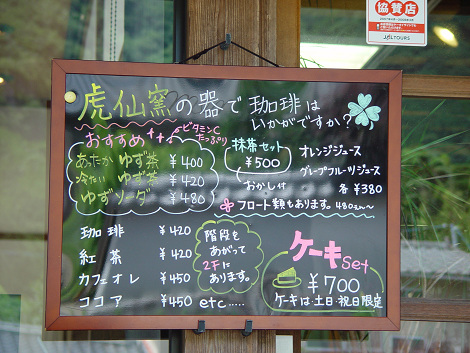 協賛店
JALTOURS
虎仙窯の器で珈琲は
いかがですか?
おすすめ
ビタミンC
たっぷり
あったかゆず茶 ¥400
冷たいゆず茶 ¥420
ゆずソーダ ¥480
抹茶セット
¥500
おかし付
オレンジジュース
グレープフルーツジュース
各¥380
フロート類もあります。480えん〜
珈琲 ¥420
紅茶 ¥420
カフェオレ ¥450
ココア ¥450 etc.....
階段を
あがって
2Fに
あります。
ケーキset
¥700
ケーキは土日・祝日限定